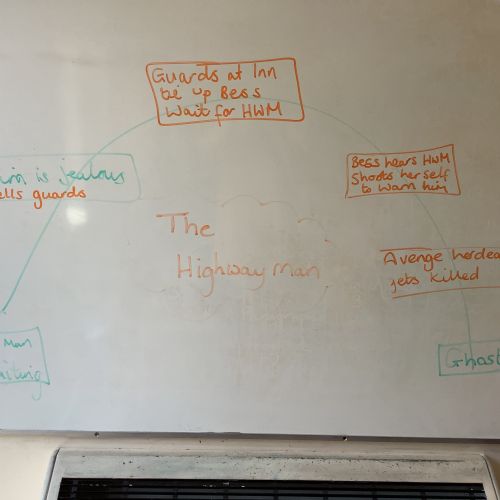 Guards at Inn
tie up Bess
Wait for HWM
is jealous
ells guards
Bess hears HWM
Shoots herself
to warn him
The
Highwayman
Avenge her dea
gets killed
Man
aiting
Ghost